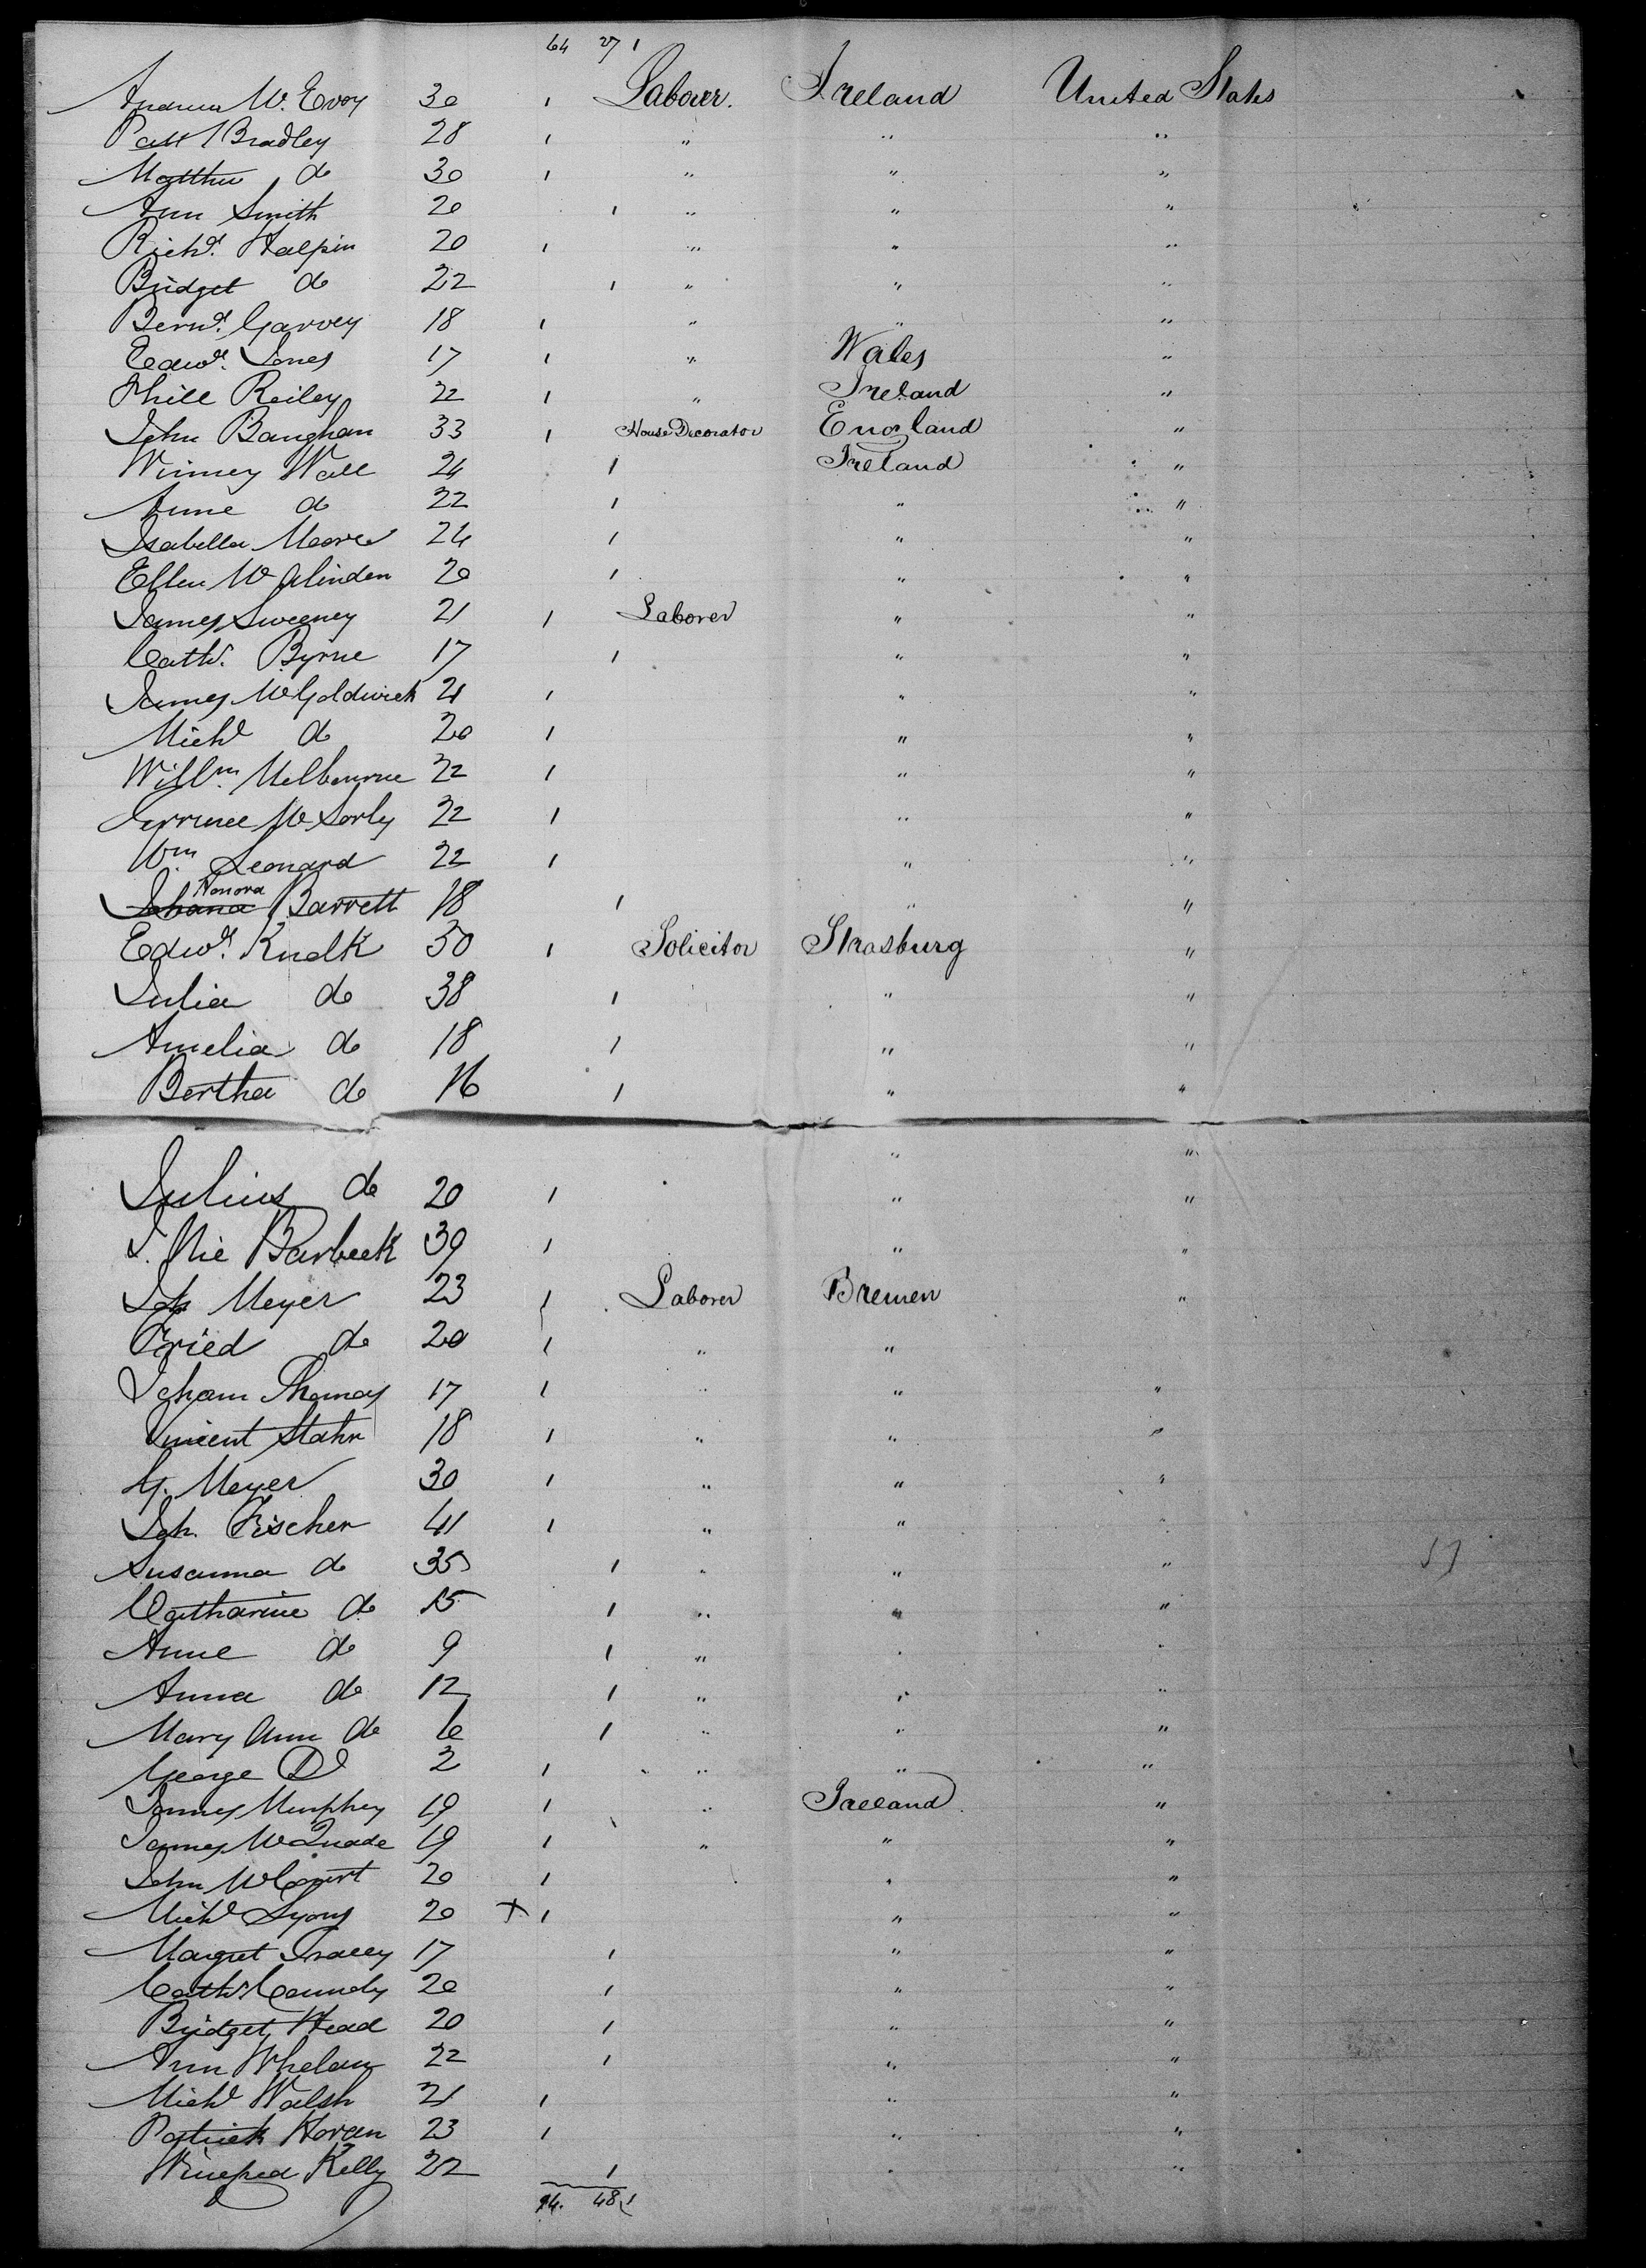 64 27 1
Andrew Mc Evoy 30 1 Laborer. Ireland United States
Patt Bradley 28 1 " " "
Matthew do 30 1 " " "
Ann Smith 20 1 " " "
Richd. Halpin 20 1 " " "
Bridget do 22 1 " " "
Bernd. Garvey 18 1 " " "
Edwd. Jones 17 1 " Wales "
Phill Reiley 22 1 " Ireland "
John Baughan 33 1 House Decorator England "
Winney Wall 24 1 Ireland "
Anne do 22 1 " "
Isabella Moore 24 1 " "
Ellen Mc Alinden 20 1 " "
James Sweeney 21 1 Laborer " "
Cath. Byrne 17 1 " "
James McGoldwick 21 1 " "
Michl do 20 1 " "
Willm. Melbourne 22 1 " "
Terrence Mc Sorly 22 1 " "
Wm Leonard 22 1 " "
Honora
Johana Barrett 18 1 " "
Edwd. Knolk 50 1 Solicitor Strasburg "
Julia do 38 1 " "
Amelia do 18 1 " "
Bertha do 16 1 " "
" "
Julius do 20 1 " "
Barbeck 39 1 " "
Joh Meyer 23 1 Laborer Bremen "
Fried do 20 1 " "
Joham Thomas 17 1 " " "
Vincent Stahr 18 1 " " "
G. Meyer 30 1 " " "
Joh. Fischer 41 1 " " "
Susanna do 35 1 " " " 57
Catharine do 15 1 " " "
Anne do 9 1 " " "
Anna do 12 1 " " "
Mary Ann do 6 1 " " "
George Do 2 1 " " "
James Murphey 19 1 " Ireland "
James McQuade 19 1 " " "
John McCourt 20 1 " "
Michl Lyons 20 X 1 " "
Margret Tracey 17 1 " "
Cath. Caundy 20 1 " "
Bridget Head 20 1 " "
Ann Whelan 22 1 " "
Michl Walsh 21 1 " "
Patrick Horan 23 1 " "
Winefred Kelly 22 1 " "
94. 48 1